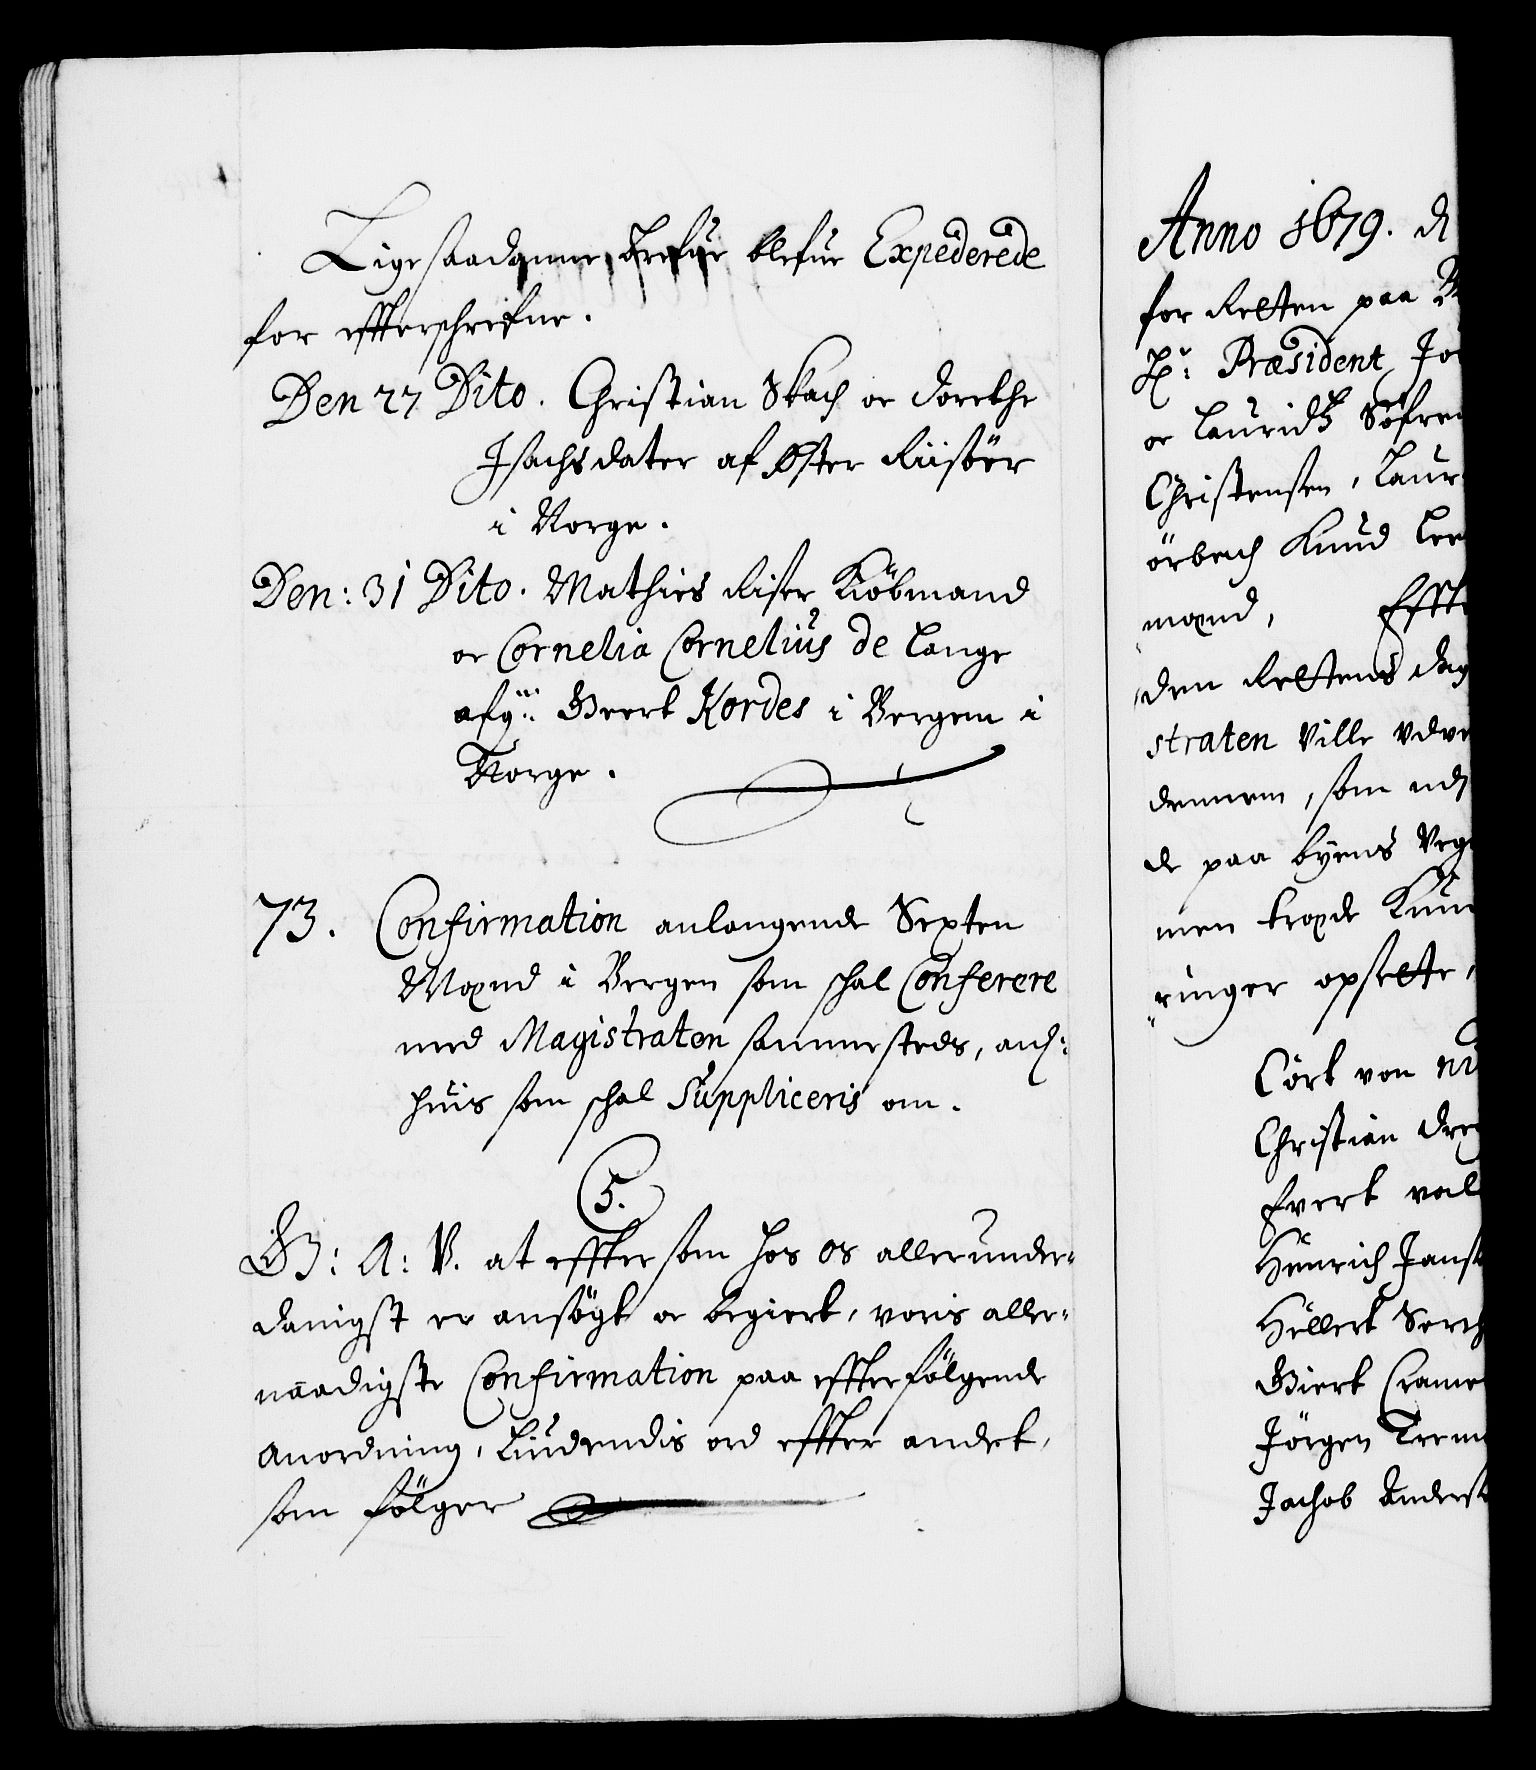 Ligesaadanne brefue blefue Expederede
for effterschrefne.
Den 27 Dito. Christian Skach oc Dorethe
Isachsdater af Øster Riisöer
i Norge.
Den: 31 Dito. Mathies Riser Kiöbmand
oc Cornelia Cornelius de Lange
afg: Geert Kordes i Bergen i
Norge.
73. Confirmation anlangende Sexten
Mænd i Bergen som schal Conferere
med Magistraten sammesteds, anl:
huis som schal Suppliceris om.
5.
G: A: V. at effter som hos os allerunder-
danigst er ansögt oc begiert, voris aller-
naadigste Confirmation paa effterfölgende
Anordning, Liudendis ord effter andet,
som fölger
Anno 1679. d
for Retten paa
Hr: Præsident Jo
oc Lauridtz Söfren
Christensen, Laur
örbech Knud
mænd, Effte
den Rettens dag
straten Ville
dennem, som
de paa byens
men træde
ringer opsette,
Cort von
Christian
Evert
Hinrich Janse
Hellert
Giert Crame
Jörgen
Jachob Anders